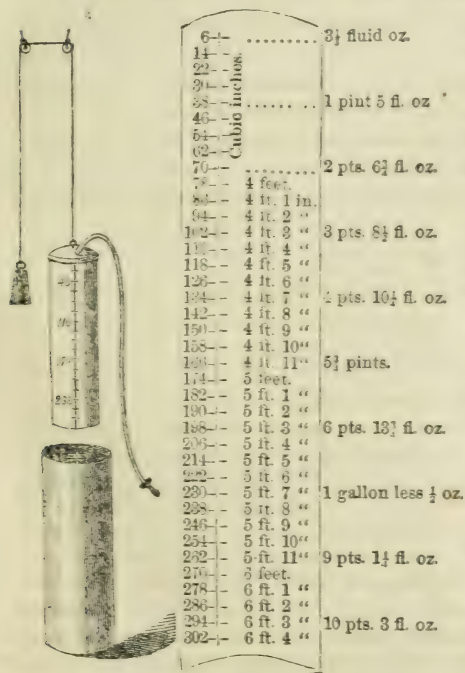 6 3½ fluid oz.
14
22
30
38 1 pint 5 fl. oz
46
54
62
70 2 pts. 6¾ fl. oz.
Cubic inches.
78 4 feet.
86 4 ft. 1 in.
94 4 ft. 2 "
102 4 ft. 3 " 3 pts. 8½ fl. oz.
4 ft. 4 "
118 4 ft. 5 "
126 4 ft. 6 "
134 4 ft. 7 " 4 pts. 10¼ fl. oz.
142 4 ft. 8 "
150 4 ft. 9 "
158 4 ft. 10 "
166 4 ft. 11 " 5¾ pints.
174 5 feet.
182 5 ft. 1 "
190 5 ft. 2 "
198 5 ft. 3 " 6 pts. 13¾ fl. oz.
206 5 ft. 4 "
214 5 ft. 5 "
222 5 ft. 6 "
230 5 ft. 7 " 1 gallon less ½ oz.
238 5 ft. 8 "
246 5 ft. 9 "
254 5 ft. 10 "
262 5 ft. 11 " 9 pts. 1¼ fl. oz.
270 6 feet.
278 6 ft. 1 "
286 6 ft. 2 "
294 6 ft. 3 " 10 pts. 3 fl. oz.
302 6 ft. 4 "